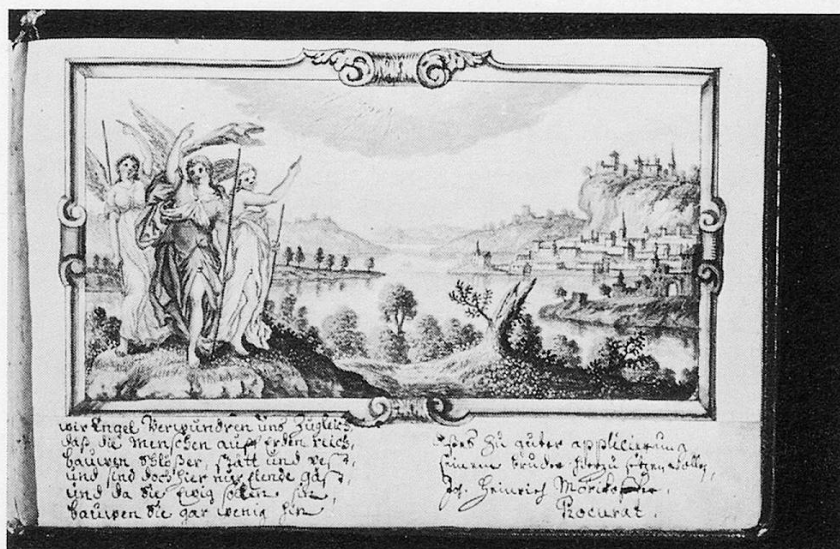 wir Engel Verwundren uns zugleich
daß die Menschen auff erden reich,
bauwen Schlößer, Statt und vest,
und sind doch hier nur frende gäst,
und da sie Ewig sollen sin,
bauwen sie gar wenig hin
zu guter applicierung
seinem bruder
Joh. Heinrich
Procurat.